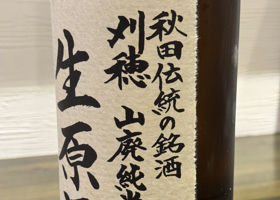 秋田伝統の銘酒
刈穂 山廃純米
生原